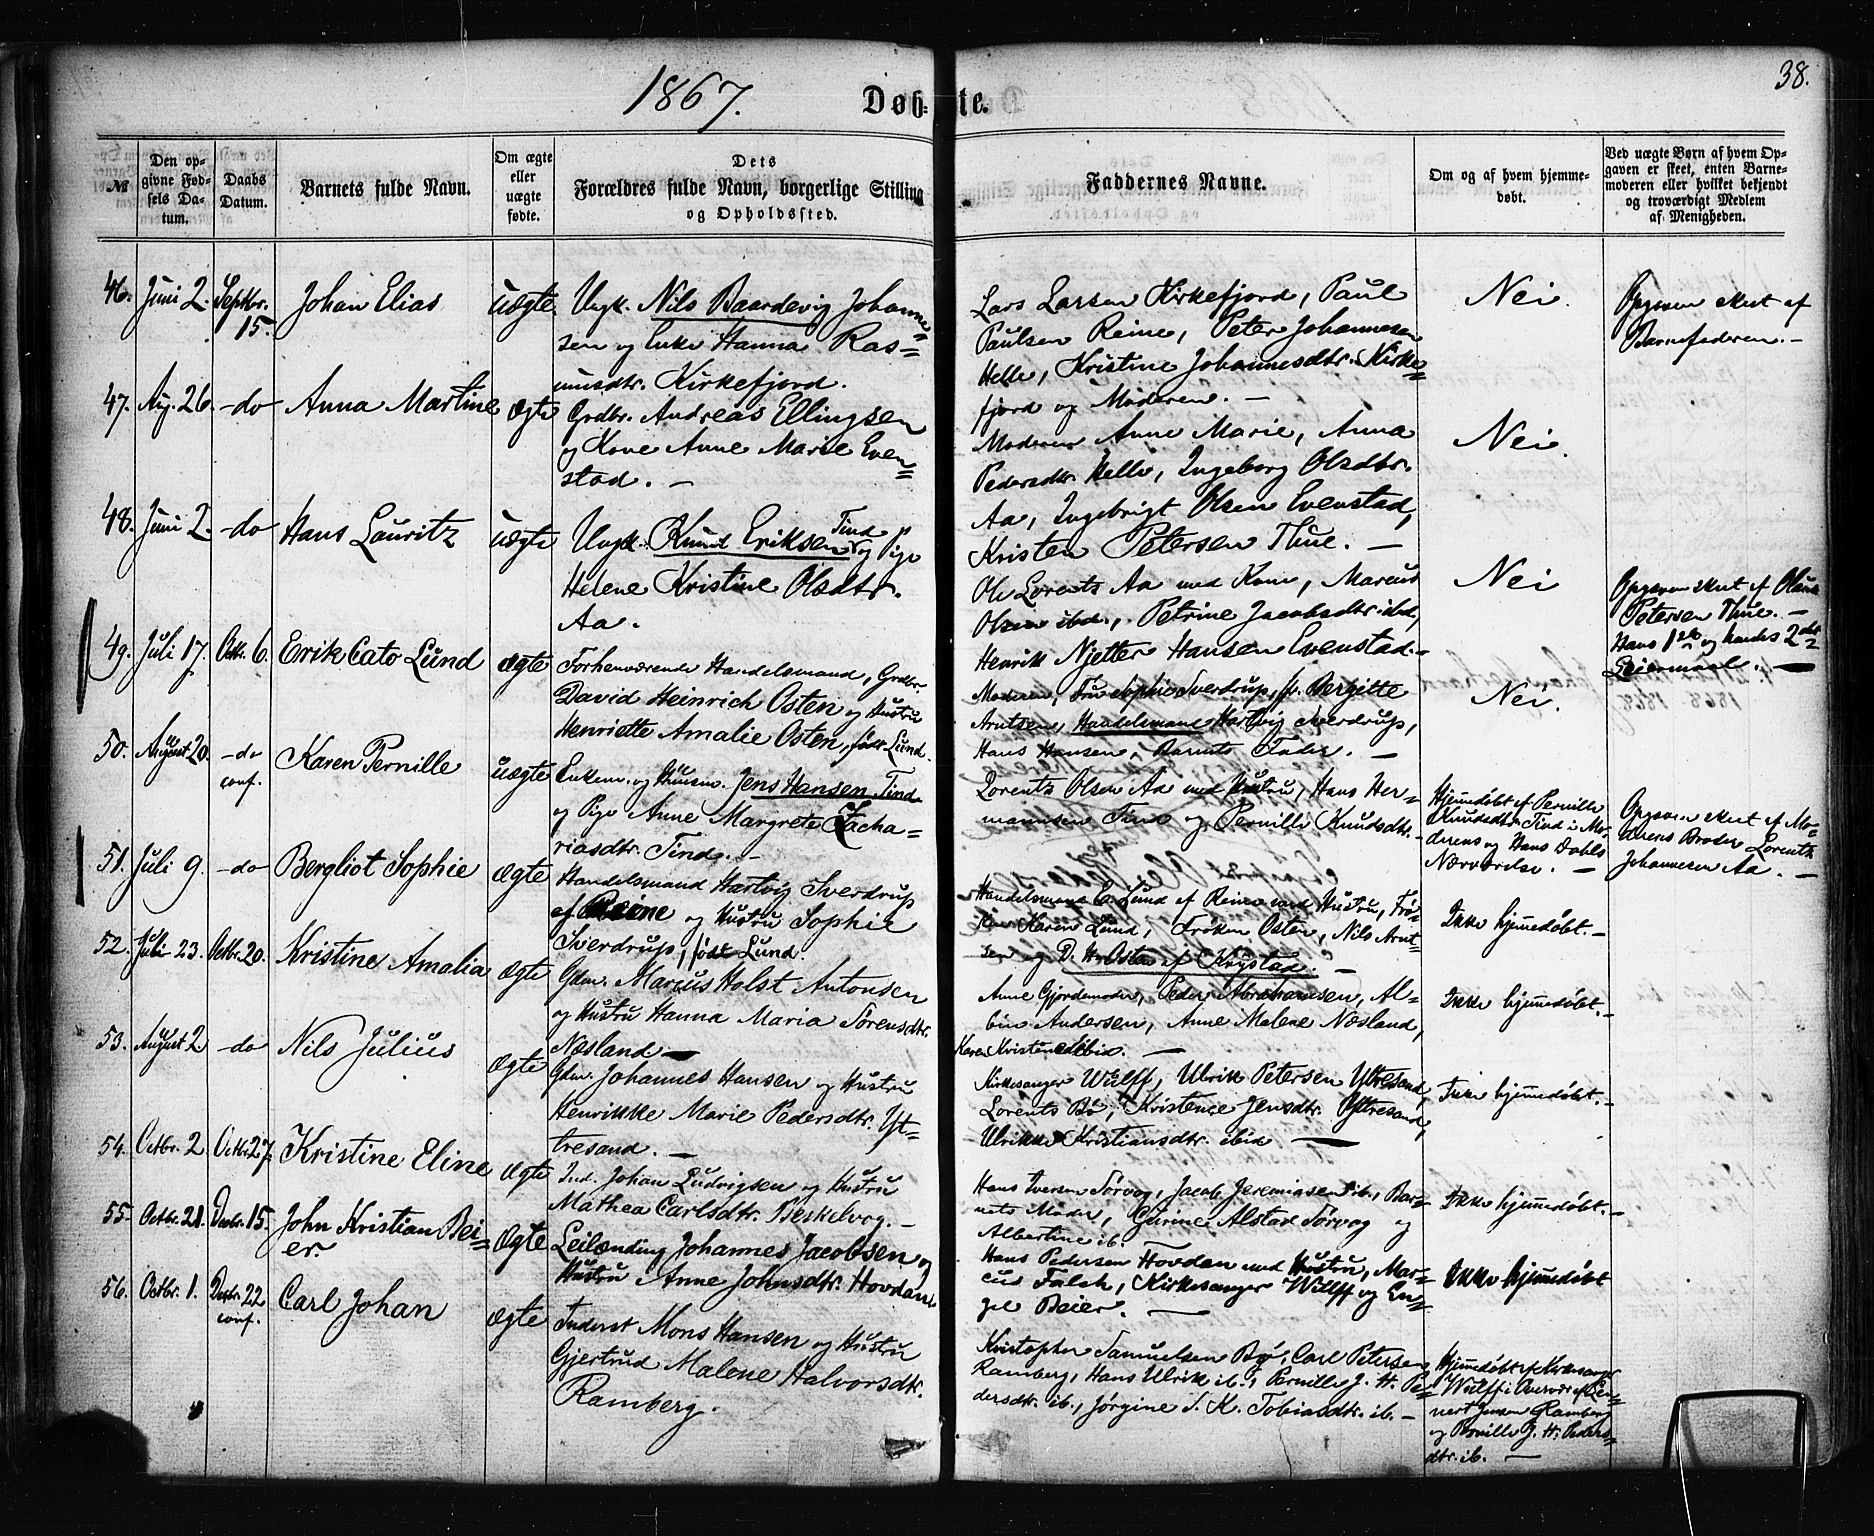 38.
1867.
Døb-
te.
№
Den op-
givne Fød-
sels Da-
tum.
Daabs
Datum.
Barnets fulde Navn.
Om ægte
eller
uægte
fødte.
Dets
Forældres fulde Navn, borgerlige Stilling
og Opholdssted.
Faddernes Navne.
Om og af hvem hjemme-
døbt.
Ved uægte Børn af hvem Op-
gaven er skeet, enten Barne-
moderen eller hvilket bekjendt
og troværdigt Medlem
af Menigheden.
46. Juni 2. Septbr. 15. Johan Elias uægte
Ungk. Nils Baardevig Johanne-
sen og Enke Hanna Ras-
musdtr. Kirkefjord.
Lars Larsen Kirkefjord, Paul
Paulsen Reine, Peter Johannesen
Helle, Kristine Johannesdtr. Kirke-
fjord og Moderen. -
Nei.
Opgaven skeet af
Barnefaderen. -
47. Aug. 26. -do Anna Martine ægte
Grdbr. Andreas Ellingsen
og Kone Anne Marie Even-
stad. -
Moderen Anne Marie, Anna
Pedersdtr. Helle, Ingeborg Olsdtr.
Aa, Ingebrigt Olsen Evenstad,
Kristen Petersen Thue. -
Nei.
48. Juni 2. -do Hans Lauritz uægte
Ungk. Knud Eriksen Tind og Pige
Helene Kristine Olsdtr.
Aa.
Ole Lorents Aa med Kone, Marcus
Olsen ibd., Petrine Jacobsdtr. ibd,
Henrik Njetter Hansen Evenstad. -
Nei
Opgaven skeet af Olaus
Petersen Thue. -
Hans 1ste og hendes 2det
Leiermaal. -
49. Juli 17. Octbr. 6. Erik Cato Lund ægte
Forhenværende Handelsmand, Grdbr.
David Heinrich Osten og Hustru
Henriette Amalie Osten, født Lund.
Moderen, Fru Sophie Sverdrup, fr. Bergitte
Arntsen, Handelsmand Hartvig Sverdrup,
Hans Hansen, Barnets Fader. -
Nei.
50. August 20. -do conf. Karen Pernille uægte
Enkem. og Huusm. Jens Hansen Tind
og Pige Anne Margrete Zacha-
riasdtr. Tind. -
Lorents Olsen Aa med Hustru, Hans Her-
mannsen Tind og Pernille Knudsdtr. -
Hjemmedøbt af Pernille
Knudsdtr. Tind i Mo-
derens og Hans Dahls
Nærværelse. -
Opgaven skeet af Mo-
derens Broder Lorents
Johannesen Aa. -
51. Juli 9. -do Bergliot Sophie ægte
Handelsmand Hartvig Sverdrup
af Reine og Hustru Sophie
Sverdrup, født Lund.
Handelsmand C. Lund af Reine med Hustru, Frø-
ken Karen Lund, Frøken Osten, Nils Arnt-
sen og D. H. Osten af Krystad. -
Ikke hjemmedøbt. -
52. Juli 23. Octbr. 20. Kristine Amalia ægte
Gdm. Marcus Holst Antonsen
og Hustru Hanna Maria Sørensdtr.
Næsland -
Anne Gjordemoder, Peder Abrahamsen, Al-
bin Andersen, Anne Malene Næsland,
Karen Kristensdtr. ibid. -
Ikke hjemmedøbt. -
53. August 2. -do Nils Julius ægte
Gdm. Johannes Hansen og Hustru
Henrikke Marie Pedersdtr. Yt-
tresand. -
Kirkesanger Wulff, Ulrik Petersen Yttresand,
Lorents Bø, Kristence Jensdtr. Yttresand,
Ulrikke Kristiansdtr. ibid -
Ikke hjemmedøbt. -
54. Octbr. 2 Octbr. 27. Kristine Eline ægte
Ind. Johan Ludvigsen og Hustru
Mathea Carlsdtr. Beskelvog. -
Hans Iversen Sørvog, Jacob Jeremiasen ib., Bar-
nets Moder, Gurine Alstad Sørvog og
Albertine ib.
Ikke hjemmedøbt. -
55. Octbr. 21. Decbr. 15. John Kristian Bei-
er. ægte
Leilænding Johannes Jacobsen og
Hustru Anne Johnsdtr. Hovdan
Hans Pedersen Hovden med Hustru, Mar-
cus Falch, Kirkesanger Wulff og En-
gel Beier. -
Ikke hjemmedøbt
56. Octbr. 1. Decbr. 22. conf. Carl Johan ægte
Inderst Mons Hansen og Hustru
Gjertrud Malene Halvorsdtr.
Ramberg.
Kristopher Samuelsen Bø, Carl Petersen
Ramberg, Hans Ulrik ib., Pernille J. H. Pe-
dersdtr. ib., Jørgine S. K. Tobiasdtr. ib. -
Hjemmedøbt af Kirkesanger
Wulff i Overvær af Len-
nert Jensen Ramberg
og Pernille J. H. Peders-
dtr. ib. -